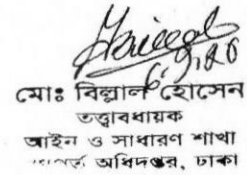 মোঃ বিল্লাল হোসেন
তত্ত্বাবধায়ক
আইন ও সাধারণ শাখা
অধিদপ্তর, ঢাকা